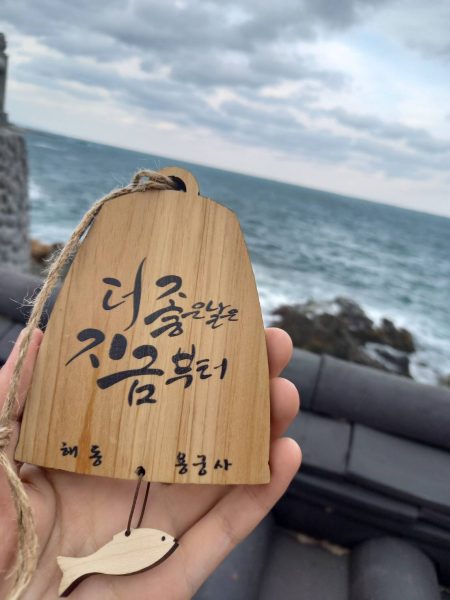 더 좋은날은
지금부터
해동 용궁사